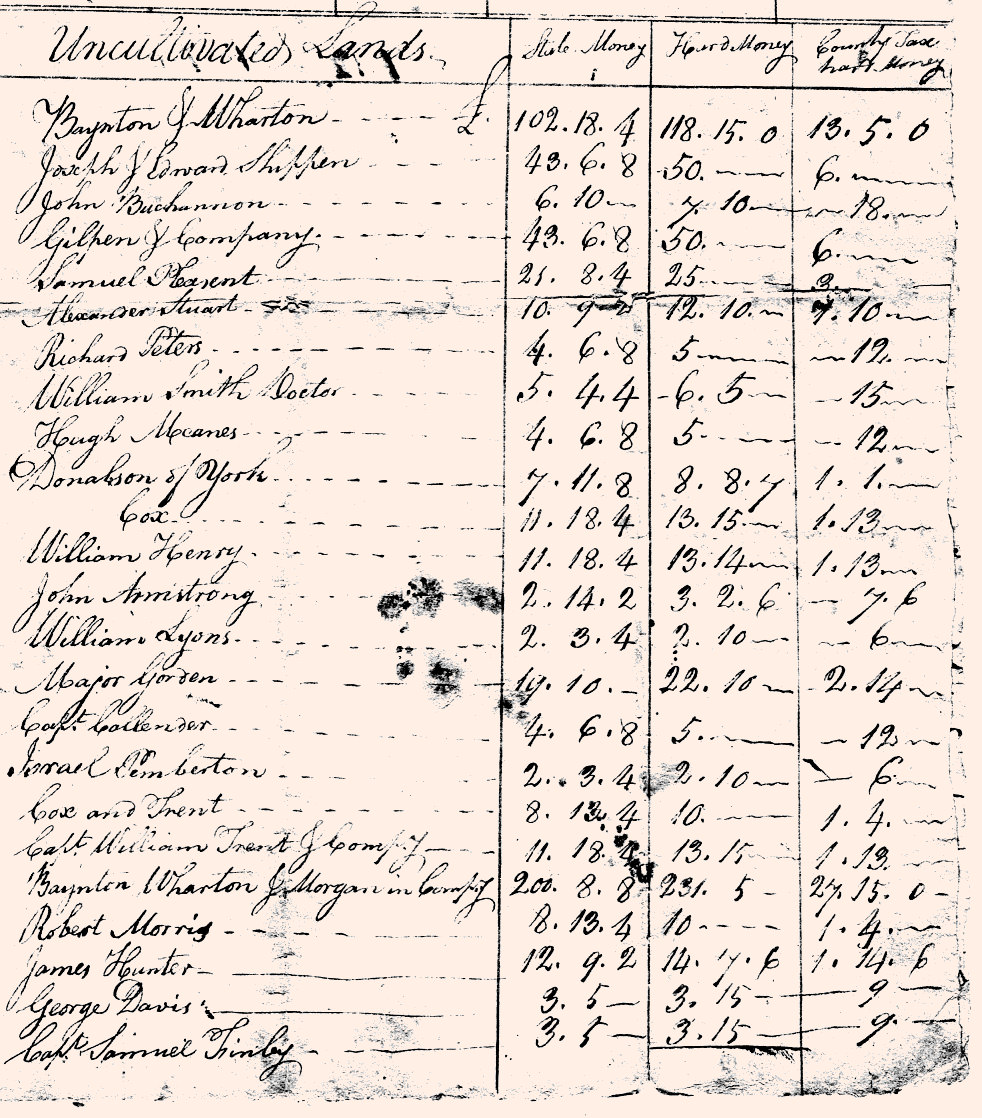 Uncultivated Lands. State Money Hard Money County Tax hard Money
Baynton & Wharton £. 102.18.4 118.15.0 13.5.0
Joseph & Edward Shippen 43.6.8 50. 6.
John Buchannon 6.10 7.10 18.
Gilpen & Company. 43.6.8 50. 6.
Samuel Pleasent 21.8.4 25 3.
Alexander Stuart 10.9 12.10. 10.
Richard Peters 4.6.8 5 12.
William Smith Doctor 5.4.4 6.5 15
Hugh Meanes 4.6.8 5 12
Donalson of York 7.11.8 8.8.7 1.1.
Cox 11.18.4 13.15 1.13
William Henry 11.18.4 13.14 1.13
John Armstrong 2.14.2 3.2.6 7.6
William Lyons 2.3.4 2.10 6
Major Gorden 19.10. 22.10 2.14
Capt. Callender 4.6.8 5. 12
Israel Pemberton 2.3.4 2.10 6
Cox and Trent 8.13.4 10. 1.4.
Capt. William Trent & Compy 11.18.4 13.15 1.13
Baynton Wharton & Morgan in Compy 200.8.8 231.5 27.15.0
Robert Morris 8.13.4 10 1.4.
James Hunter 12.9.2 14.7.6 1.14.6
George Davis 3.5 3.15 9
Capt. Samuel Finley 3.5 3.15 9.